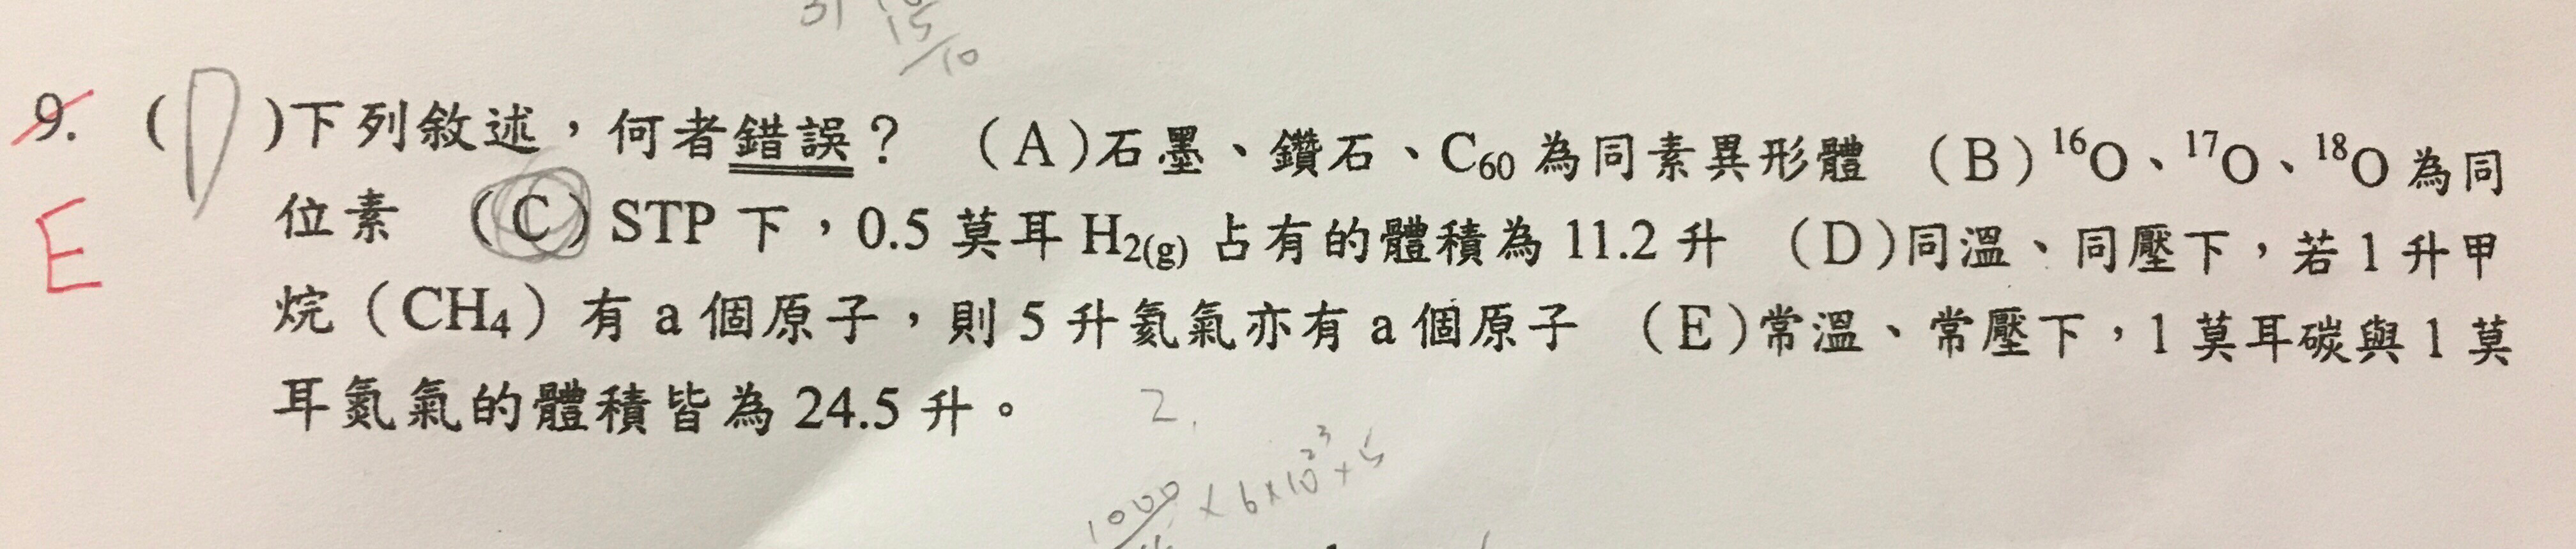 15/10
9. ( D )下列敘述，何者錯誤？ (A)石墨、鑽石、C₆₀為同素異形體 (B)¹⁶O、¹⁷O、¹⁸O為同
E 位素 (C)STP下，0.5莫耳H₂(g)占有的體積為11.2升 (D)同溫、同壓下，若1升甲
烷（CH₄）有a個原子，則5升氦氣亦有a個原子 (E)常溫、常壓下，1莫耳碳與1莫
耳氮氣的體積皆為24.5升。
2.
1000 × 6×10²³×5